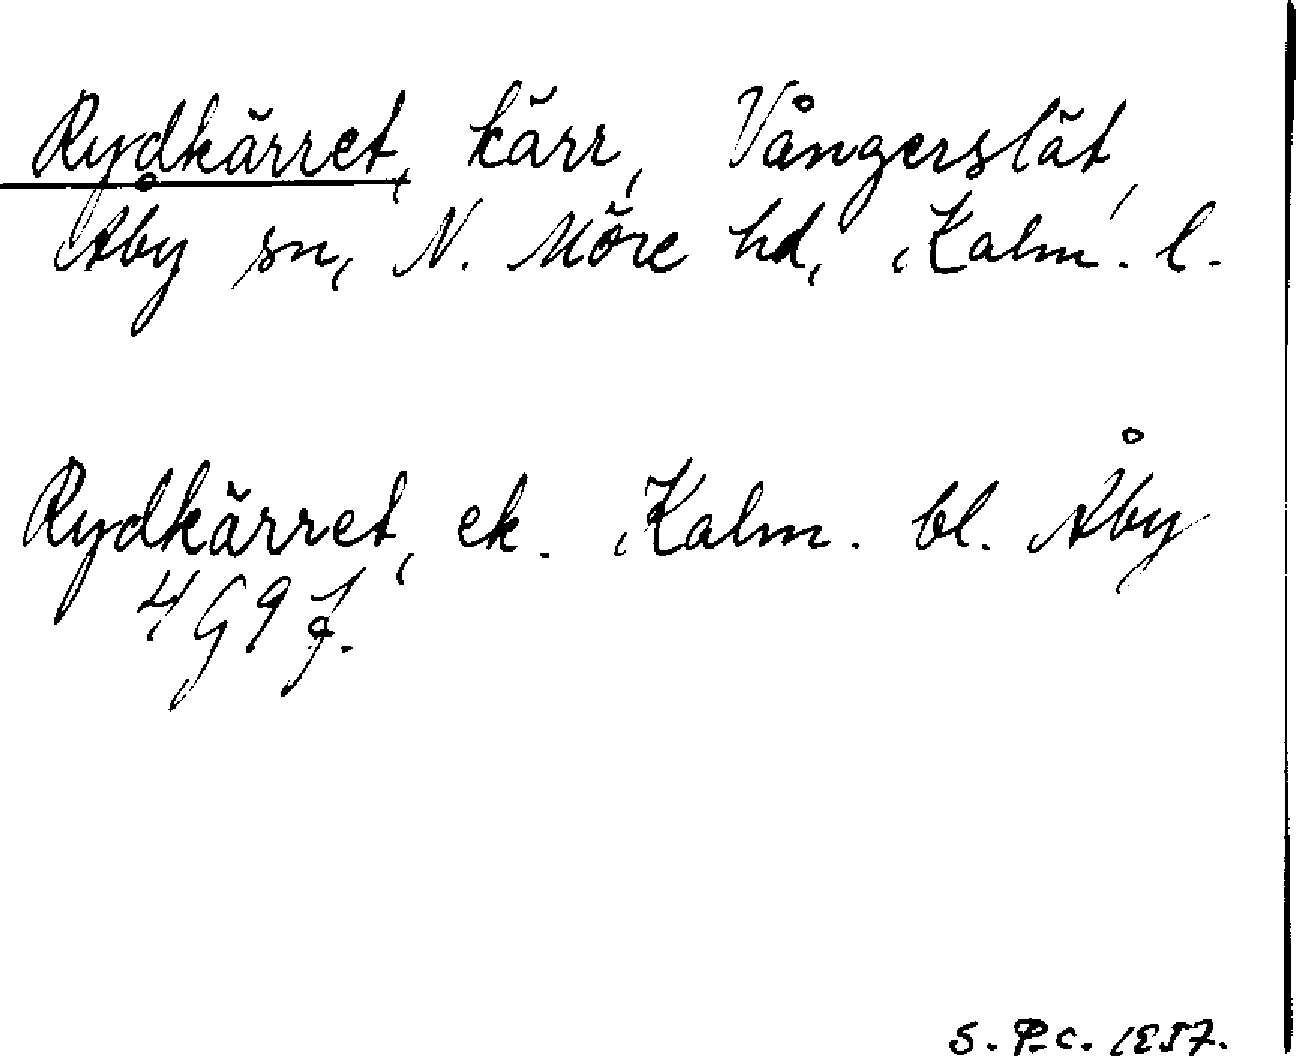 Rydkärret, kärr, Vångerslät,
Åby sn, N. Möre hd, Kalm. l.
Rydkärret, ek. Kalm. bl. Åby
4G9f.
S. P.C. 1957.